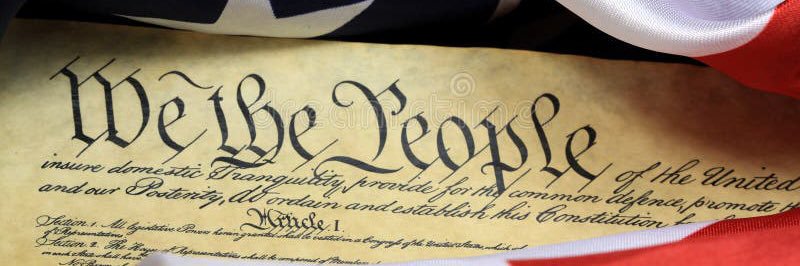 We the People of the United
insure domestic Tranquility, provide for the common defence, promote th
and our Posterity, do ordain and establish this Constitution
Article I.
Section 1. All legislative Powers herein granted shall be vested in a Congress of the United States, which
of Representatives.
Section 2. The House of Representatives shall be composed of Members
dreamstime